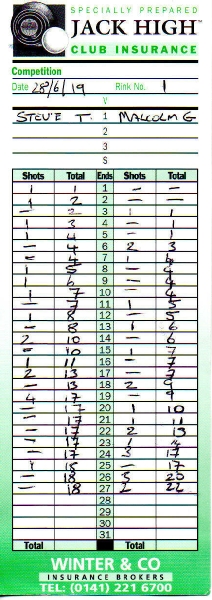 SPECIALLY PREPARED
JACK HIGH™
CLUB INSURANCE
Competition
Date 28/6/19 Rink No. 1
V
STEVE T. 1 MALCOLM G
2
3
S
Shots Total Ends Shots Total
1 1 1 — —
1 2 2 — —
— 2 3 1 1
1 3 4 — 1
1 4 5 — 1
— 4 6 2 3
— 4 7 1 4
1 5 8 — 4
1 6 9 — 4
1 7 10 — 4
— 7 11 1 5
1 8 12 — 5
— 8 13 1 6
2 10 14 — 6
— 10 15 1 7
1 11 16 — 7
2 13 17 — 7
— 13 18 2 9
4 17 19 — 9
— 17 20 1 10
— 17 21 1 11
— 17 22 2 13
— 17 23 1 14
— 17 24 3 17
1 18 25 — 17
— 18 26 3 20
— 18 27 2 22
28
29
30
31
Total Total
WINTER & CO
INSURANCE BROKERS
TEL: (0141) 221 6700